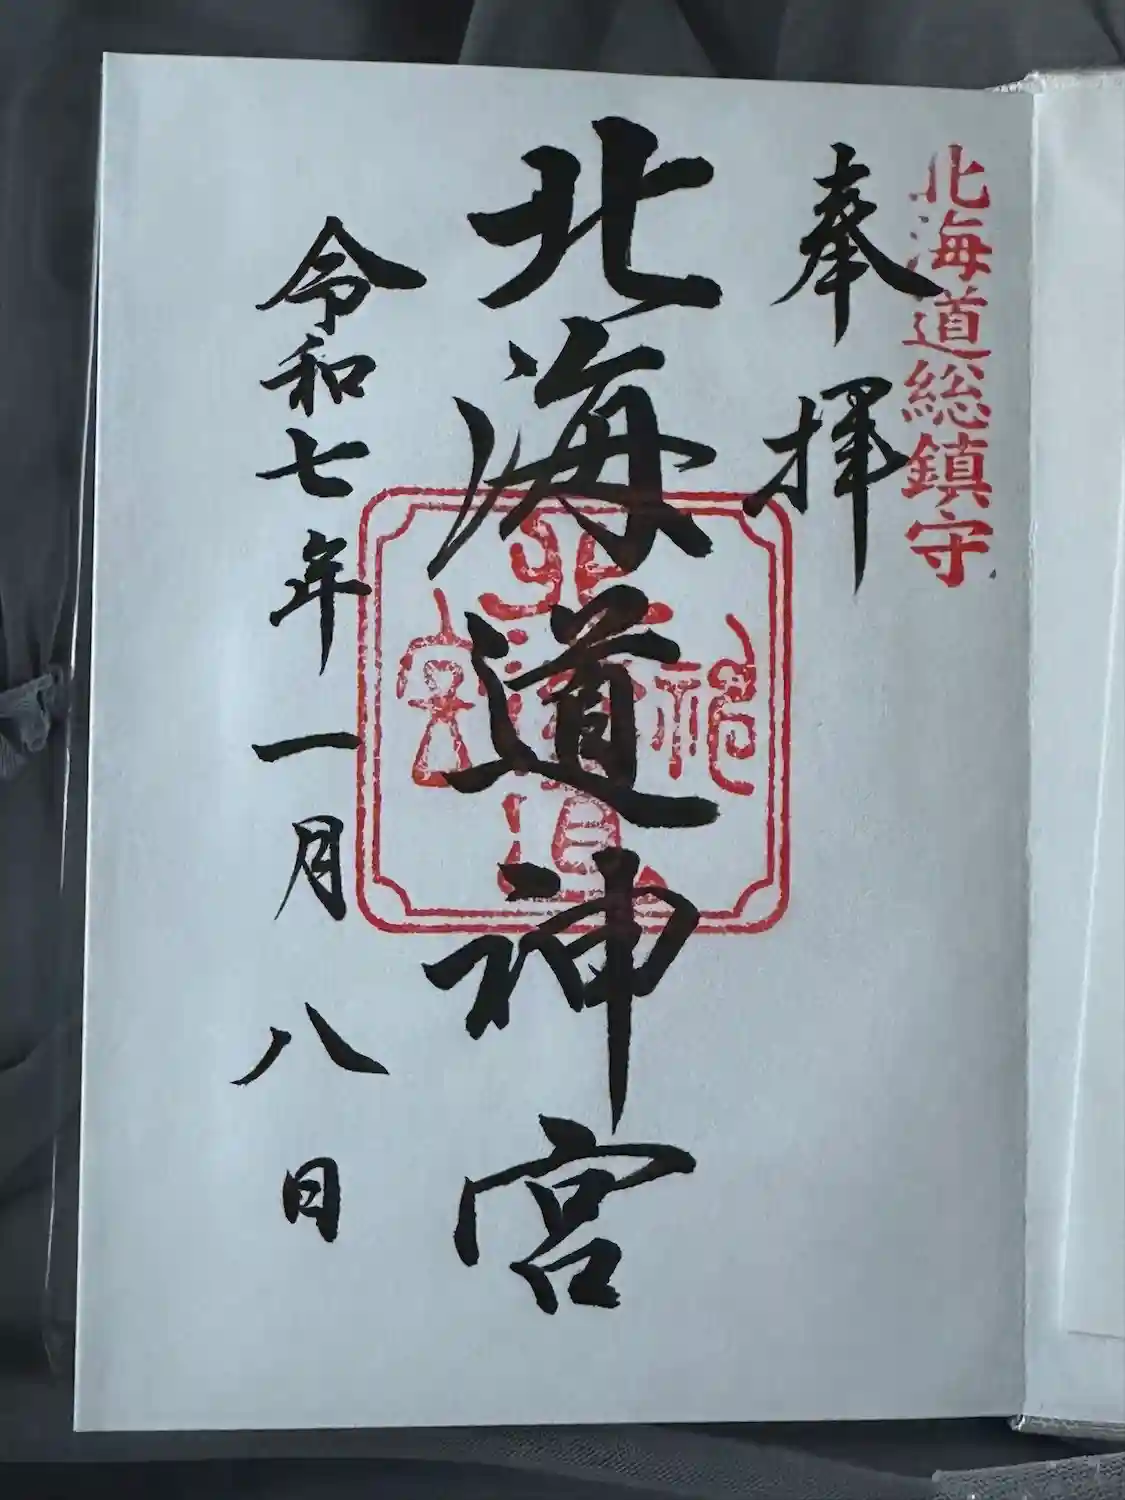 北海道総鎮守
奉拝
北海道神宮
令和七年一月八日